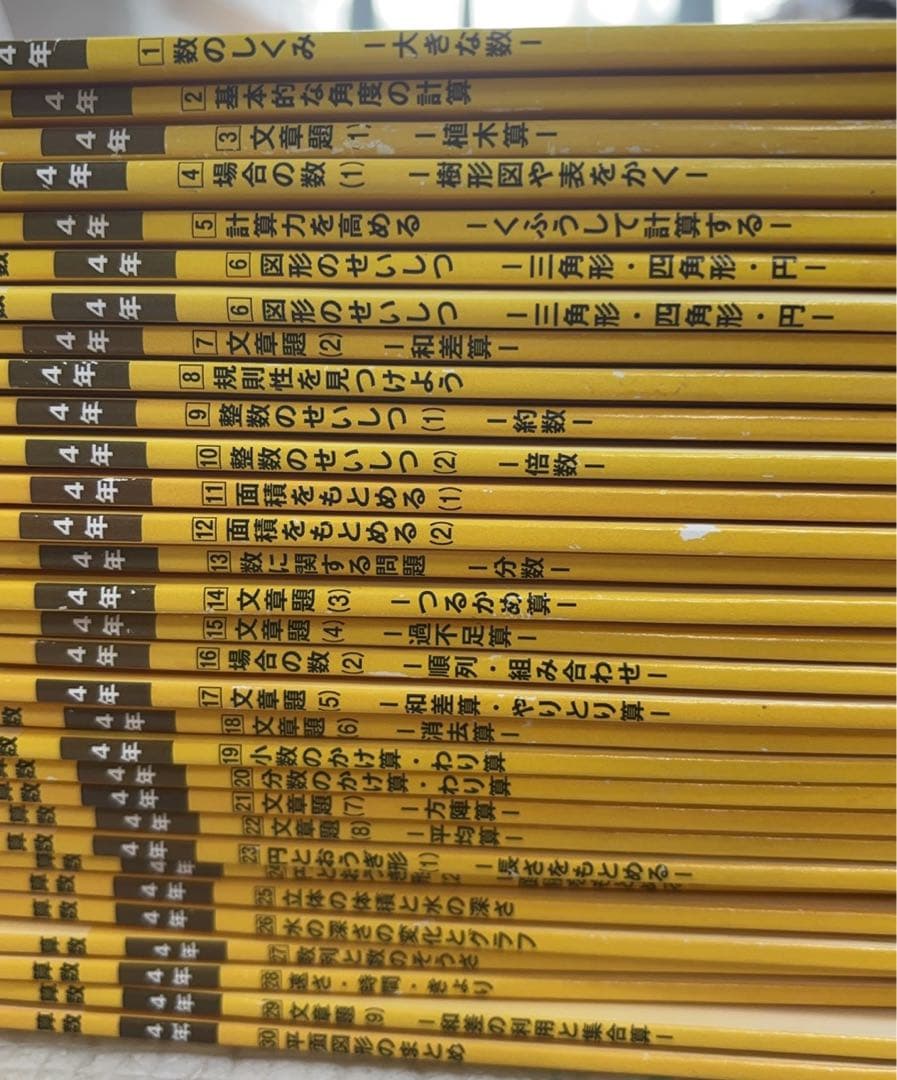 4年 1 数のしくみ ー大きな数ー
4年 2 基本的な角度の計算
4年 3 文章題(1) ー植木算ー
4年 4 場合の数(1) ー樹形図や表をかくー
4年 5 計算力を高める ーくふうして計算するー
数 4年 6 図形のせいしつ ー三角形・四角形・円ー
数 4年 6 図形のせいしつ ー三角形・四角形・円ー
4年 7 文章題(2) ー和差算ー
4年 8 規則性を見つけよう
4年 9 整数のせいしつ(1) ー約数ー
4年 10 整数のせいしつ(2) ー倍数ー
4年 11 面積をもとめる(1)
4年 12 面積をもとめる(2)
4年 13 数に関する問題 ー分数ー
4年 14 文章題(3) ーつるかめ算ー
4年 15 文章題(4) ー過不足算ー
4年 16 場合の数(2) ー順列・組み合わせー
4年 17 文章題(5) ー和差算・やりとり算ー
数 4年 18 文章題(6) ー消去算ー
数 4年 19 小数のかけ算・わり算
算数 4年 20 分数のかけ算・わり算
算数 4年 21 文章題(7) ー方陣算ー
算数 4年 22 文章題(8) ー平均算ー
算数 4年 23 円とおうぎ形(1) ー長さをもとめるー
算数 4年 24 円とおうぎ形
算数 4年 25 立体の体積と水の深さ
算数 4年 26 水の深さの変化とグラフ
算数 4年 27 数列と数のそうさ
算数 4年 28 速さ・時間・きょり
算数 4年 29 文章題(9) ー和差の利用と集合算ー
算数 4年 30 平面図形のまとめ